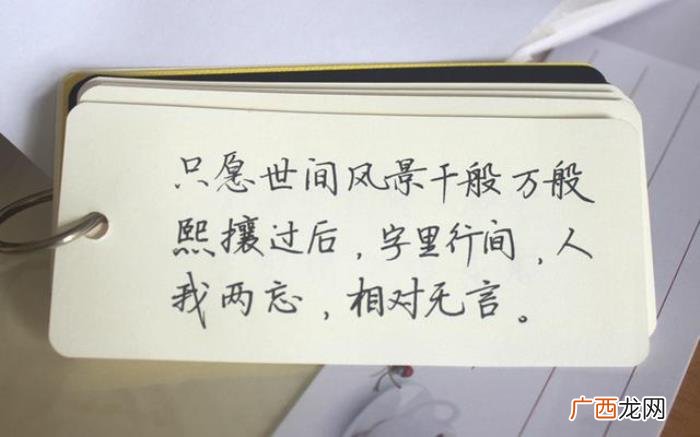 只愿世间风景千般万般
熙攘过后，字里行间，人
我两忘，相对无言。
广西龙网